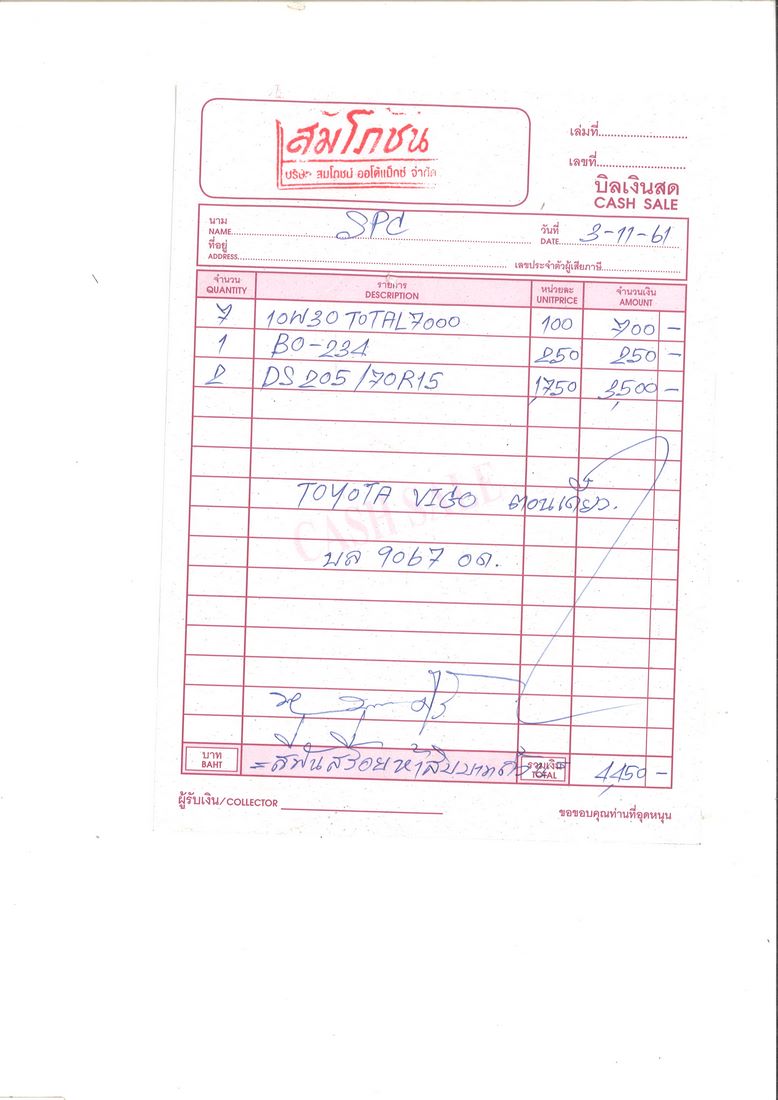 สมโภชน์
บริษัท สมโภชน์ ออโต้แม็กซ์ จำกัด
เล่มที่
เลขที่
บิลเงินสด
CASH SALE
นาม
NAME SPC
วันที่
DATE 3-11-61
ที่อยู่
ADDRESS
เลขประจำตัวผู้เสียภาษี
จำนวน รายการ หน่วยละ จำนวนเงิน
QUANTITY DESCRIPTION UNITPRICE AMOUNT
7 10W30 TOTAL7000 100 700 -
1 BO-234 250 250 -
2 DS 205/70R15 1750 3500 -
CASH SALE
TOYOTA VIGO ตอนเดียว.
บล 9067 อด.
บาท
BAHT
=สี่พันสี่ร้อยห้าสิบบาทถ้วน=
รวมเงิน
TOTAL
4450 -
ผู้รับเงิน/COLLECTOR
ขอขอบคุณท่านที่อุดหนุน